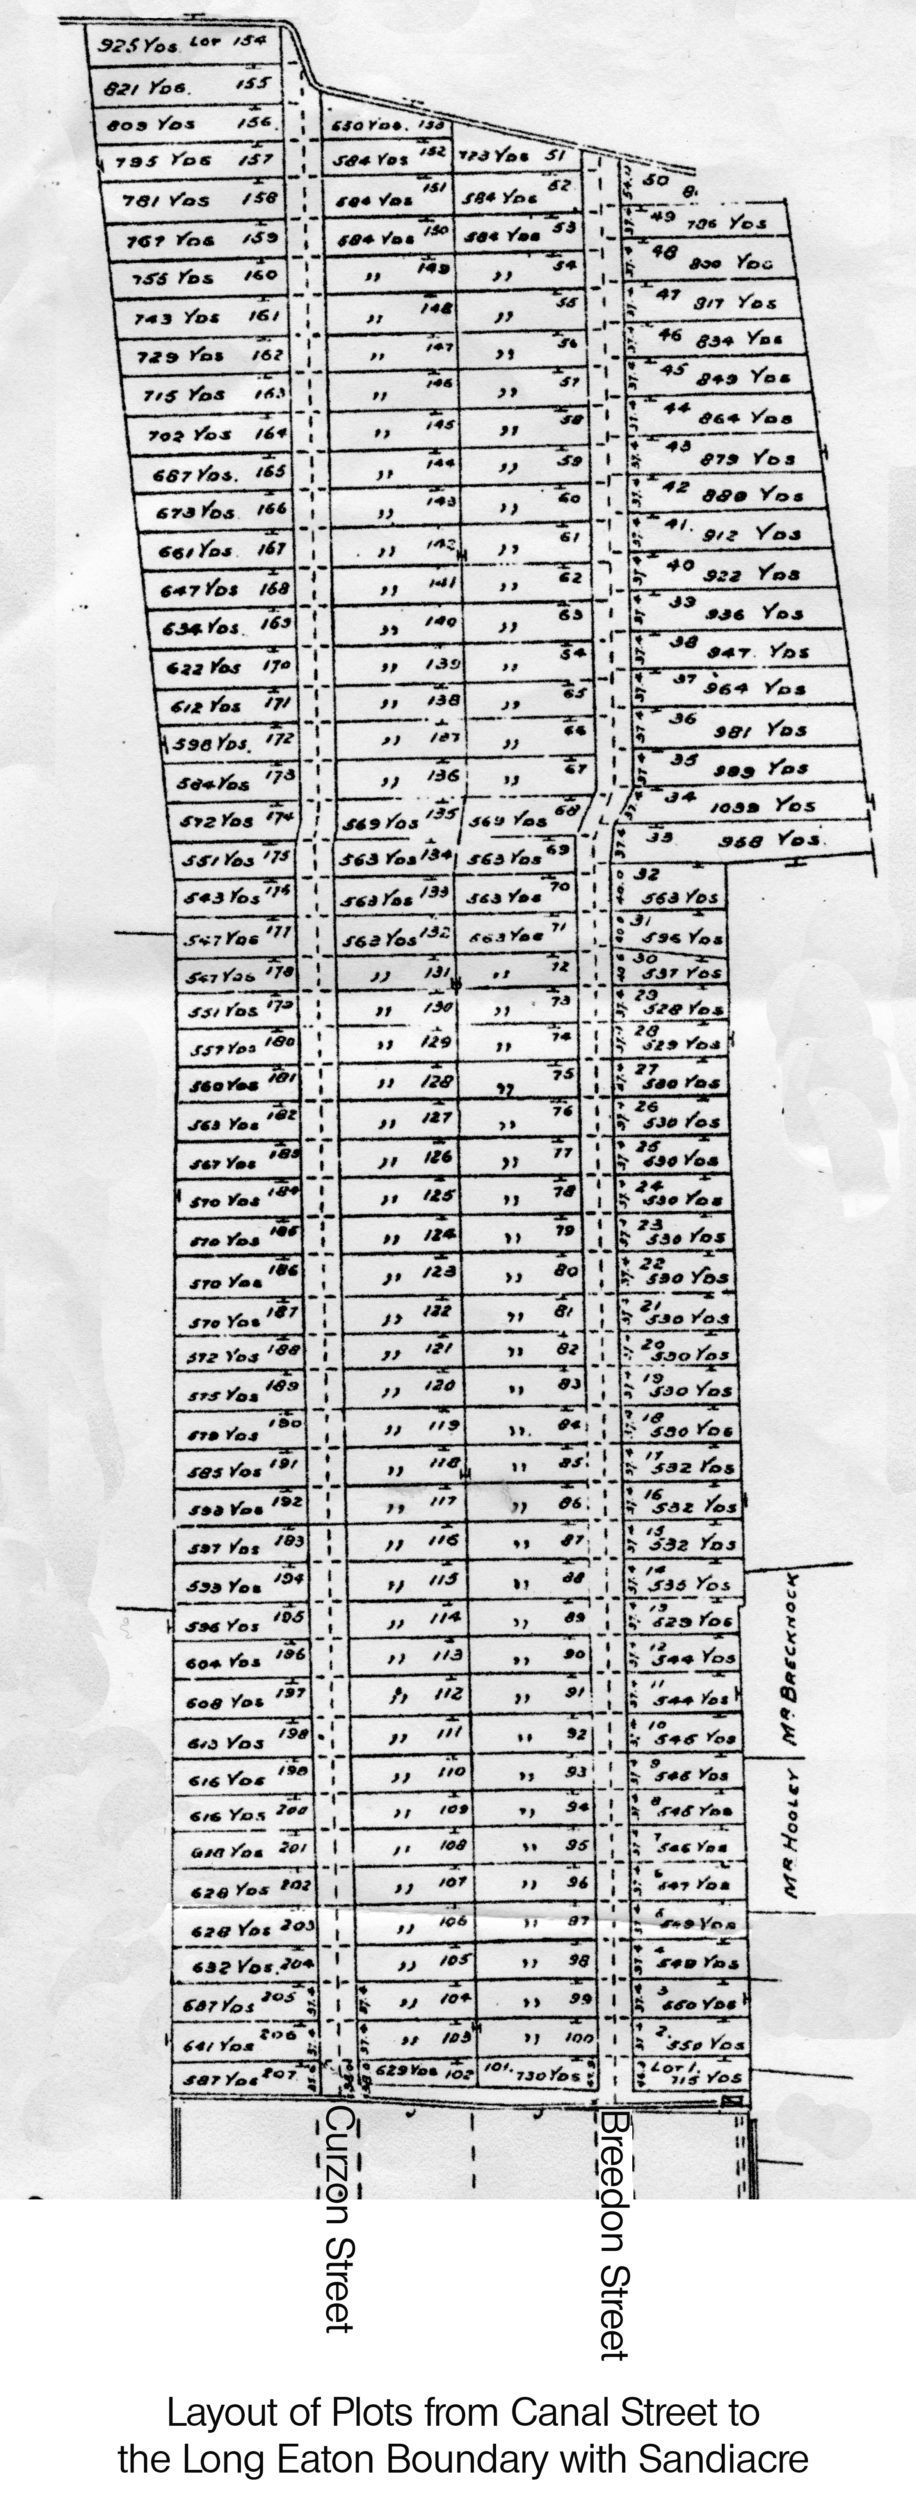 925 YDS. LOT 154
821 YDS. 155
809 YDS 156.
795 YDS 157
781 YDS 158
767 YDS 159
755 YDS 160
743 YDS 161
729 YDS 162
715 YDS 163
702 YDS 164
687 YDS. 165
673 YDS. 166
661 YDS. 167
647 YDS 168
634 YDS. 169
622 YDS 170
612 YDS 171
598 YDS. 172
584 YDS 173
572 YDS 174
551 YDS 175
543 YDS 176
547 YDS 177
547 YDS 178
551 YDS 179
557 YDS 180
560 YDS 181
563 YDS 182
567 YDS 183
570 YDS 184
570 YDS 185
570 YDS 186
570 YDS 187
572 YDS 188
575 YDS 189
579 YDS 190
585 YDS 191
593 YDS 192
597 YDS 193
593 YDS 194
596 YDS 195
604 YDS 196
608 YDS 197
613 YDS 198
616 YDS 199
616 YDS 200
YDS 201
628 YDS 202
628 YDS 203
632 YDS. 204
637 YDS 205
641 YDS 206
587 YDS 207
650 YDS. 153
584 YDS 152
584 YDS 151
584 YDS 150
,, 149
,, 148
,, 147
,, 146
,, 145
,, 144
,, 143
,, 142
,, 141
,, 140
,, 139
,, 138
,, 137
,, 136
569 YDS 135
563 YDS 134
563 YDS 133
563 YDS 132
,, 131
,, 130
,, 129
,, 128
,, 127
,, 126
,, 125
,, 124
,, 123
,, 122
,, 121
,, 120
,, 119
,, 118
,, 117
,, 116
,, 115
,, 114
,, 113
,, 112
,, 111
,, 110
,, 109
,, 108
,, 107
,, 106
,, 105
,, 104
,, 103
629 YDS 102
723 YDS 51
584 YDS 52
584 YDS 53
,, 54
,, 55
,, 56
,, 57
,, 58
,, 59
,, 60
,, 61
,, 62
,, 63
,, 64
,, 65
,, 66
,, 67
569 YDS 68
563 YDS 69
563 YDS 70
563 YDS 71
,, 72
,, 73
,, 74
,, 75
,, 76
,, 77
,, 78
,, 79
,, 80
,, 81
,, 82
,, 83
,, 84
,, 85
,, 86
,, 87
,, 88
,, 89
,, 90
,, 91
,, 92
,, 93
,, 94
,, 95
,, 96
,, 97
,, 98
,, 99
,, 100
101. 730 YDS
50 8
49 786 YDS
48 800 YDS
47 817 YDS
46 834 YDS
45 849 YDS
44 864 YDS
43 879 YDS
42 889 YDS
41. 912 YDS
40 922 YDS
39 936 YDS
38 947. YDS
37 964 YDS
36 981 YDS
35 989 YDS
34 1039 YDS
33 958 YDS.
32 563 YDS
31 596 YDS
30 537 YDS
29 528 YDS
28 529 YDS
27 530 YDS
26 530 YDS
25 530 YDS
24 530 YDS
23 530 YDS
22 530 YDS
21 530 YDS
20 530 YDS
19 530 YDS
18 530 YDS
17 532 YDS
16 532 YDS
15 532 YDS
14 535 YDS
13 529 YDS
12 544 YDS
11 544 YDS
10 546 YDS
9 546 YDS
8 546 YDS
7 546 YDS
6 547 YDS
5 549 YDS
4 549 YDS
3 550 YDS
2. 550 YDS
LOT 1. 715 YDS
MR BRECKNOCK
MR HOOLEY
Curzon Street
Breedon Street
Layout of Plots from Canal Street to
the Long Eaton Boundary with Sandiacre